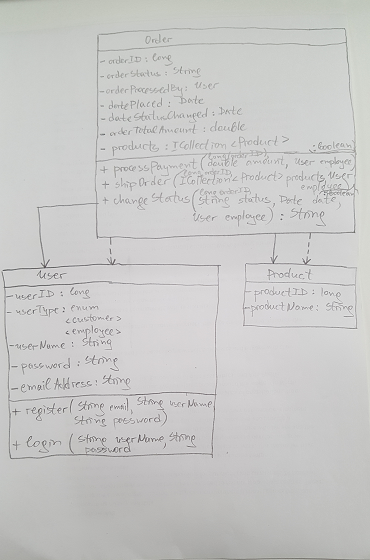 Order
- orderID : long
- orderStatus : String
- orderProcessedBy : User
- datePlaced : Date
- dateStatusChanged : Date
- orderTotalAmount : double
- products : ICollection <Product>
: boolean
(long orderID)
+ processPayment (double amount, User employee)
(long orderID)
+ shipOrder (ICollection <Product> products, User
employee) : boolean
(long orderID)
+ changeStatus (String status, Date date,
User employee) : String
User
- userID : long
- userType : enum
<customer>
<employee>
- userName : String
- password : String
- emailAddress : String
+ register (String email, String userName,
String password)
+ login (String userName, String
password
Product
- productID : long
- productName : String